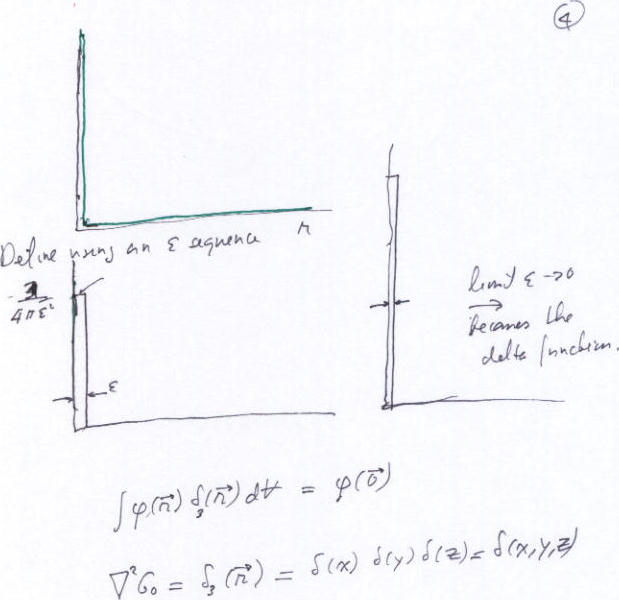 4
r
Define using an ε sequence
3
4πε²
ε
limit ε →0
→
becomes the
delta function.
∫ φ(r⃗) δ₃(r⃗) dV = φ(0⃗)
∇²G₀ = δ₃(r⃗) = δ(x) δ(y) δ(z) = δ(x,y,z)